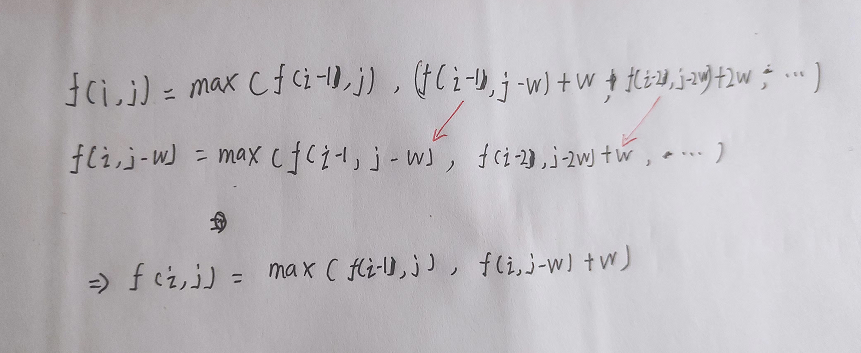 f(i,j) = max ( f(i-1),j) , (f(i-1), j-w)+w , f(i-2), j-2w)+2w , ...)
f(i,j-w) = max ( f(i-1, j-w) , f(i-2), j-2w)+w , ....)
⇒ f(i,j) = max ( f(i-1),j) , f(i,j-w)+w)